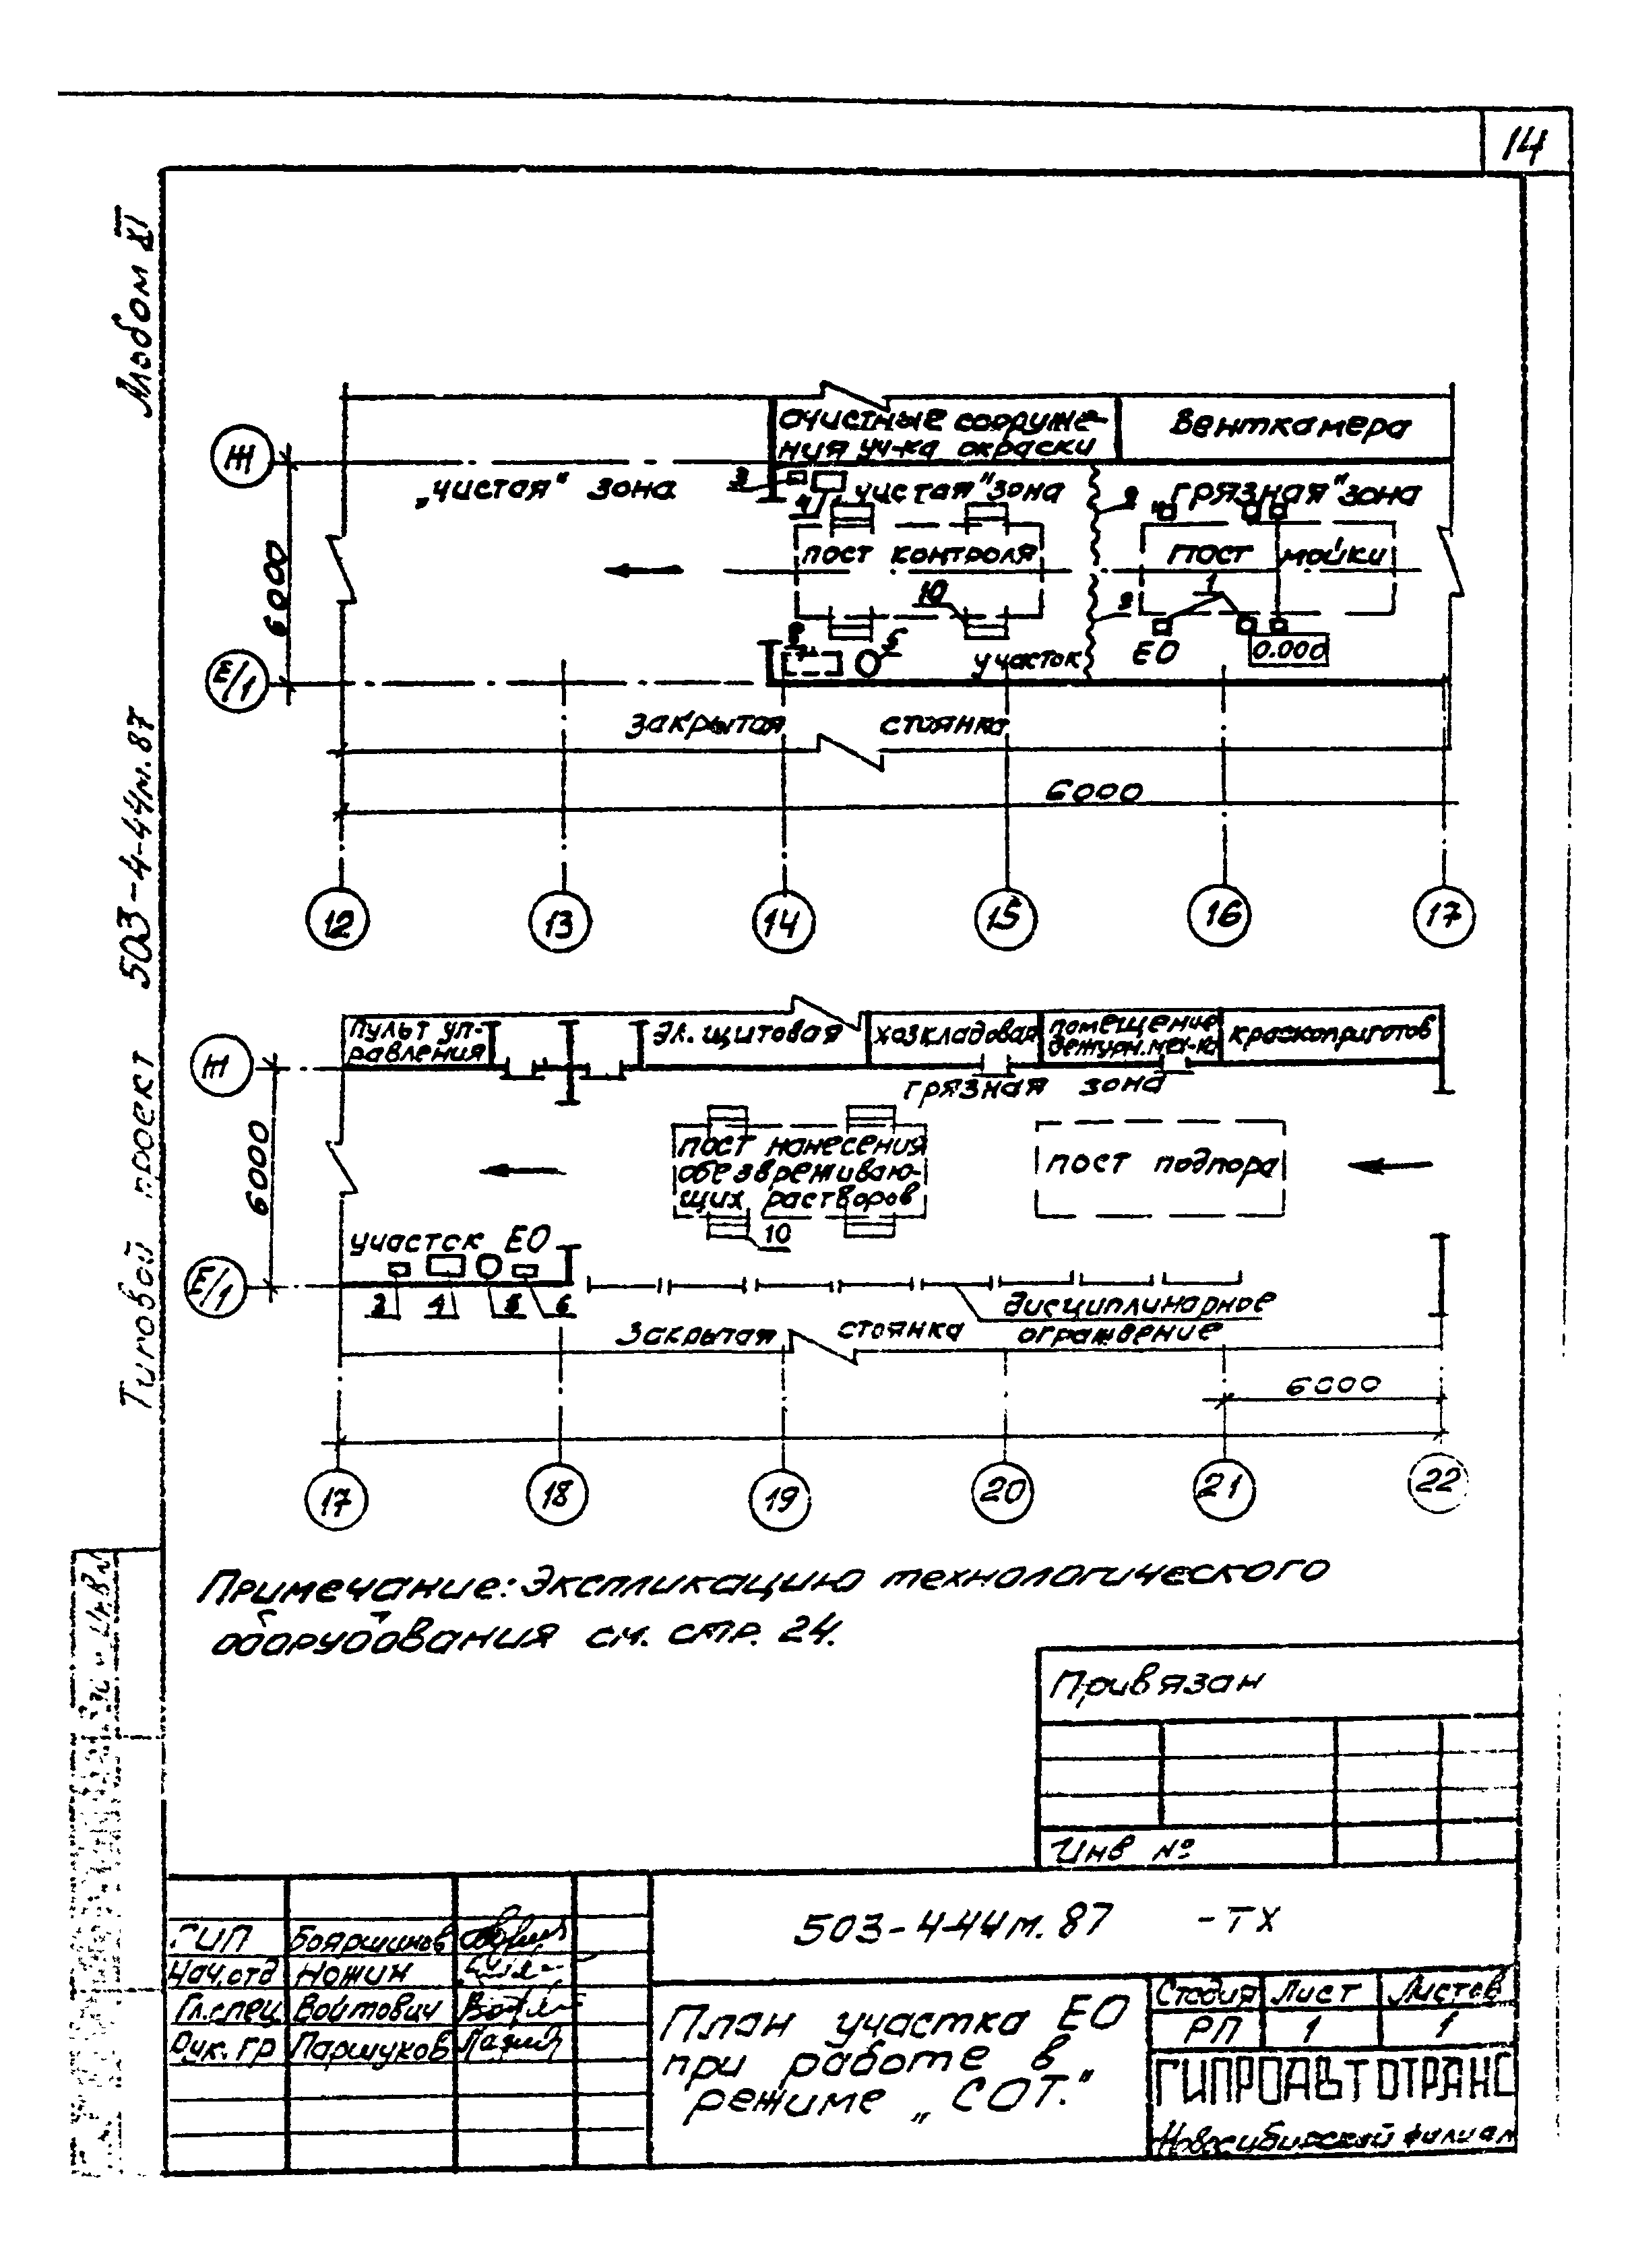 14
Альбом XI
Типовой проект 503-4-44м.87
очистные сооруже-
ния уч-ка окраски
Венткамера
Ж
„чистая" зона
3
4
„чистая" зона
9
„грязная" зона
6000
пост контроля
пост мойки
10
1
9
8
7
5
участок
ЕО
0.000
Е/1
закрытая стоянка
6000
12
13
14
15
16
17
пульт уп-
равления
эл. щитовая
хозкладовая
помещение
дежурн.мех-ка
краскоприготов
Ж
грязная зона
6000
пост нанесения
обезвреживаю-
щих растворов
пост подпора
10
участок ЕО
Е/1
3
4
5
6
дисциплинарное
ограждение
Закрытая стоянка
6000
17
18
19
20
21
22
Примечание: Экспликацию технологического
оборудования см. стр. 24.
Привязан
Инв №
503-4-44м.87 -ТХ
ГИП Бояршинов
Нач.отд Ножин
Гл.спец. Войтович
Рук. гр Паршуков
План участка ЕО
при работе в
режиме „СОТ."
Стадия Лист Листов
РП 1 1
ГИПРОАВТОТРАНС
Новосибирский филиал